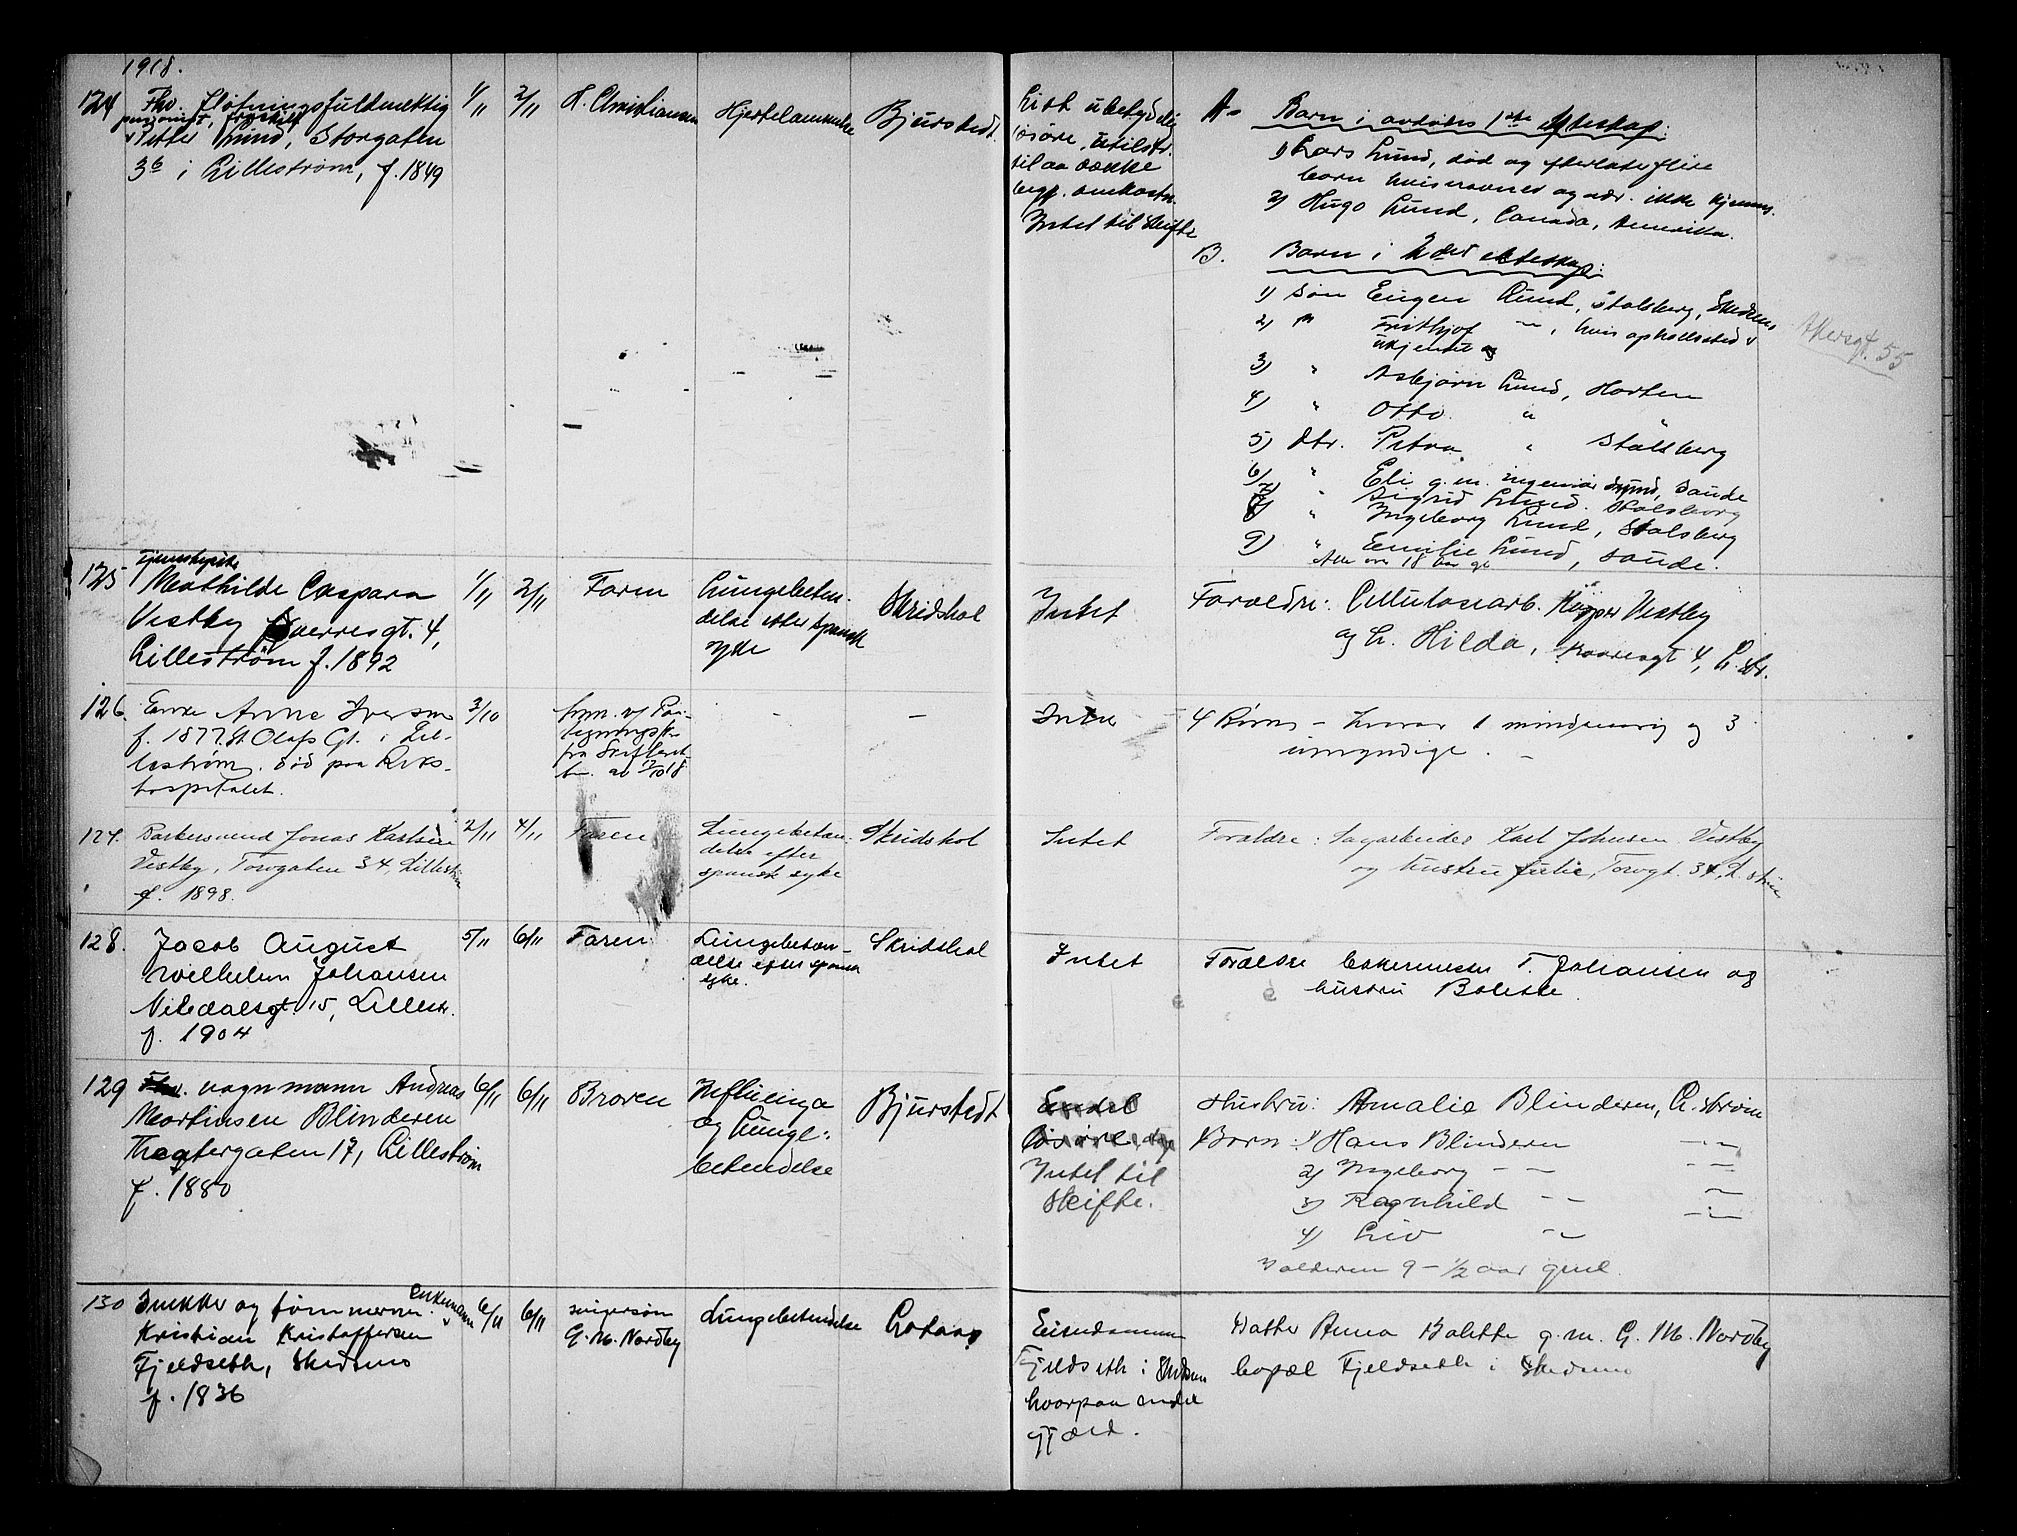 1918.
124
Fhv. fløtningsfuldmektig
pensionist, fraskilt
Petter Lund, Storgaten
3b i Lillestrøm, f. 1849
1/11
2/11
H. Christiansen
Hjertelammelse
Bjurstedt.
Litt ubetydelig
løsøre, utilstr.
til aa dække
begr. omkostn.
Intet til skifte
A.
Barn i avdødes 1ste egteskap:
1) Lars Lund, død og efterlater flere
barn hvis navne og adr. ikke kjennes.
2) Hugo Lund, Canada, Amerika.
B.
Barn i 2det ekteskap:
1) Søn Eugen Lund, Stalsberg, Skedsmo
2) " Frithjof —"—, hvis opholdssted
ukjendt
Akersgt. 55
3) " Asbjørn Lund, Horten
4) " Otto "
5) dtr. Petra " Stalsberg
6) " Eli g.m. ingeniør Lund, Sande
7) " Sigrid Lund. Stalsberg
8) " Ingeborg Lund, Stalsberg
9) " Emilie Lund, Sande.
Alle over 18 aar gl.
125
Tjenestepike
Mathilde Caspara
Vestby Sverresgt. 4,
Lillestrøm f. 1892
1/11
2/11
Faren
Lungebeten-
delse etter spansk
syke
Skridshol
Intet
Forældre: Cellulosearb. Kasper Vestby
og h. Hilda, Sverresgt 4, L. str.
126.
Enke Anne Iversen
f. 1877. St. Olafs Gt. i Lil-
lestrøm. Død paa Riks-
hospitalet.
3/10
fra Skifteret
–
–
Intet
4 Børn – hvorav 1 mindreaarig og 3
umyndige.
127.
Bakersvend Jonas Karlsen
Vestby, Torvgaten 34, Lillestrøm
f. 1898.
2/11
4/11
Faren
Lungebetæn-
delse efter
spansk syke
Skridshol
Intet
Forældre: Sagarbeider Karl Johnsen Vestby
og hustru Julie, Torvgt. 34, L. strøm
128.
Jacob August
Wilhelm Johansen
Nitedalsgt. 15, Lillestr.
f. 1904
5/11
6/11
Faren
Lungebetæn-
delse efter spansk
syke.
Skridshol
Intet
Forældre bakermester T. Johansen og
hustru Bolette.
129
Fhv. vognmann Andreas
Martinsen Blinderen
Theatergaten 17, Lillestrøm
f. 1880
6/11
6/11
Broren
Influensa
og Lunge-
betendelse
Bjurstedt
Endel
løsøre,
Intet til
skifte.
Hustru: Amalie Blinderen, L. strøm
Barn: 1) Hans Blinderen —"—
2) Ingeborg —"— —"—
3) Ragnhild —"— —"—
4) Liv —"— —"—
I alderen 9 – 1/2 aar gml.
130
Snekker og tømmerm. enkemann
Kristian Kristoffersen
Fjeldseth, Skedsmo
f. 1836
6/11
6/11
svigersøn
G. M. Nordby
Lungebetendelse
Eiendommen
Fjeldseth i Skedsmo
hvorpaa endel
gjæld.
Datter Anna Bolette g. m. G. M. Nordby
bopæl Fjeldseth i Skedsmo